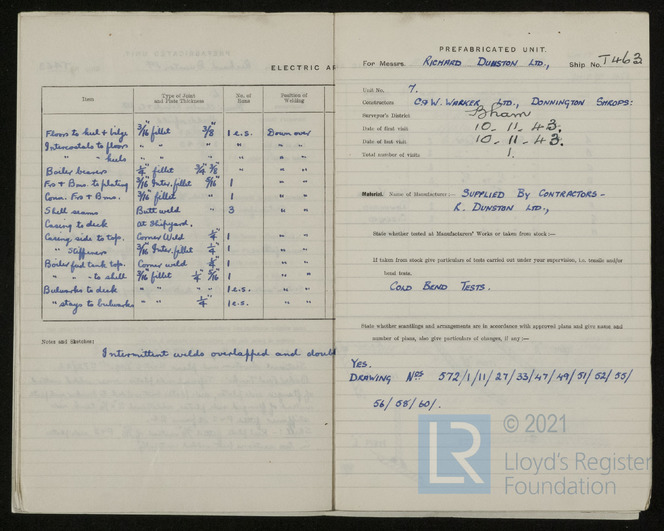 ELECTRIC AR
Item Type of Joint and Plate Thickness No. of Runs Position of Welding
Floors to keel & bilge 3/16 fillet 3/8 1 e.s. Down over
Intercostals to floors " " " " "
" " keels " " " " "
Boiler bearers 1/4 fillet 3/4 3/8 " " "
Frs & Bms. to plating 3/16 Inter. fillet 5/16 1 " "
Conn. Frs & Bms. 3/16 fillet " 1 " "
Shell seams Butt weld " 3 " "
Casing to deck at Shipyard.
Casing side to top. Corner Weld 1/4 1 " "
" Stiffeners 3/16 Inter. fillet 1/4 1 " "
Boiler fwd tank top. Corner weld 1/4 1 " "
" " to shell 3/16 fillet 1/4 5/16 1 " "
Bulwarks to deck " " 1 e.s. " "
" stays to bulwarks " " 1/4 1 e.s. " "
Notes and Sketches:
Intermittent welds overlapped and doubl
PREFABRICATED UNIT.
For Messrs. RICHARD DUNSTON LTD., Ship No. T463
Unit No. 7.
Constructors C & W. WALKER LTD., DONNINGTON SHROPS:
Surveyor's District B'ham
Date of first visit 10-11-43.
Date of last visit 10-11-43.
Total number of visits 1.
Material. Name of Manufacturer:— SUPPLIED BY CONTRACTORS -
R. DUNSTON LTD.,
State whether tested at Manufacturers' Works or taken from stock:—
If taken from stock give particulars of tests carried out under your supervision, i.e. tensile and/or
bend tests.
COLD BEND TESTS.
State whether scantlings and arrangements are in accordance with approved plans and give name and
number of plans, also give particulars of changes, if any:—
YES.
DRAWING Nos 572/1/11/27/33/47/49/51/52/55/
56/58/60/.
LR
© 2021
Lloyd's Register
Foundation